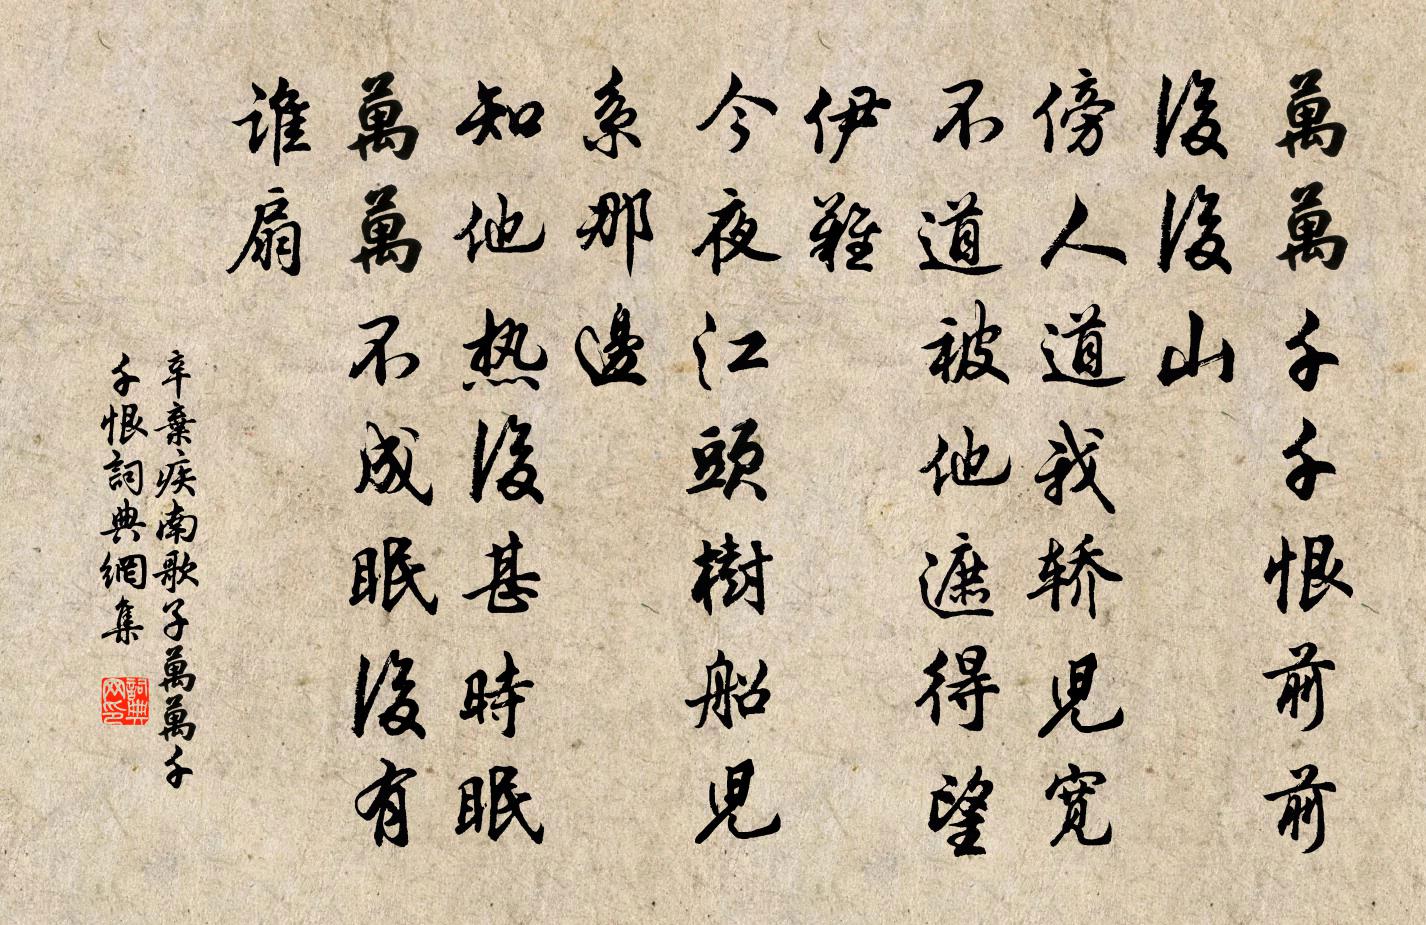 萬萬千千恨前前
後後山
傍人道我轿兒寛
不道被他遮得望
伊難
今夜江頭樹船兒
系那邊
知他热後甚時眠
萬萬不成眠後有
誰扇
辛棄疾南歌子萬萬千
千恨詞典網集
詞典网印